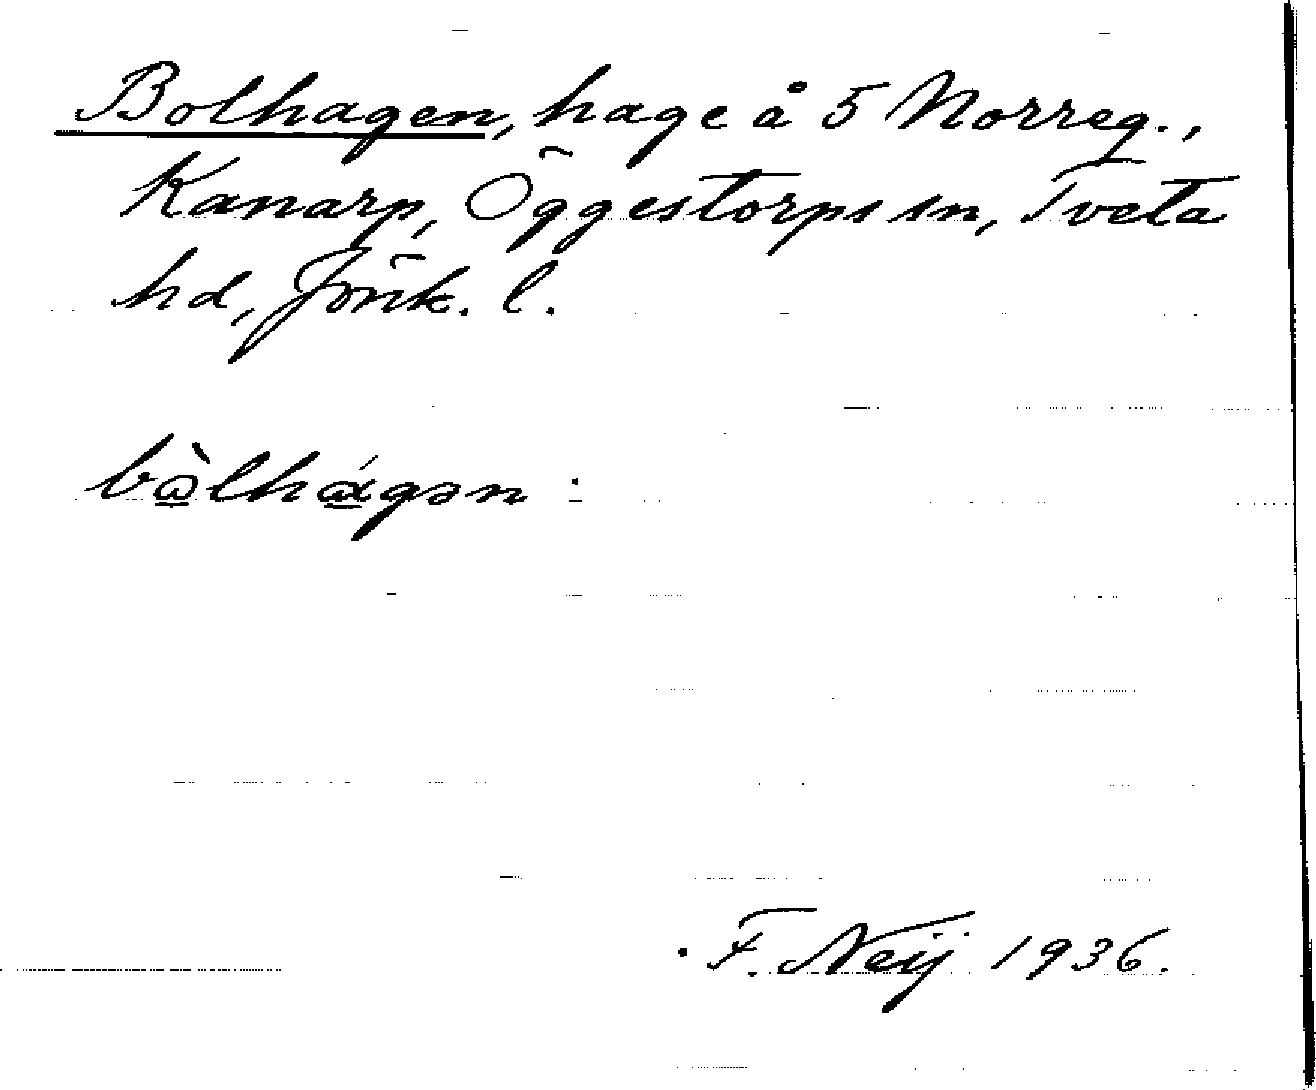 Bolhagen, hage å 5 Norreg.,
Kanarp, Öggestorps sn, Tveta
hd, Jönk. l.
bὼlhágən
F. Neij 1936.